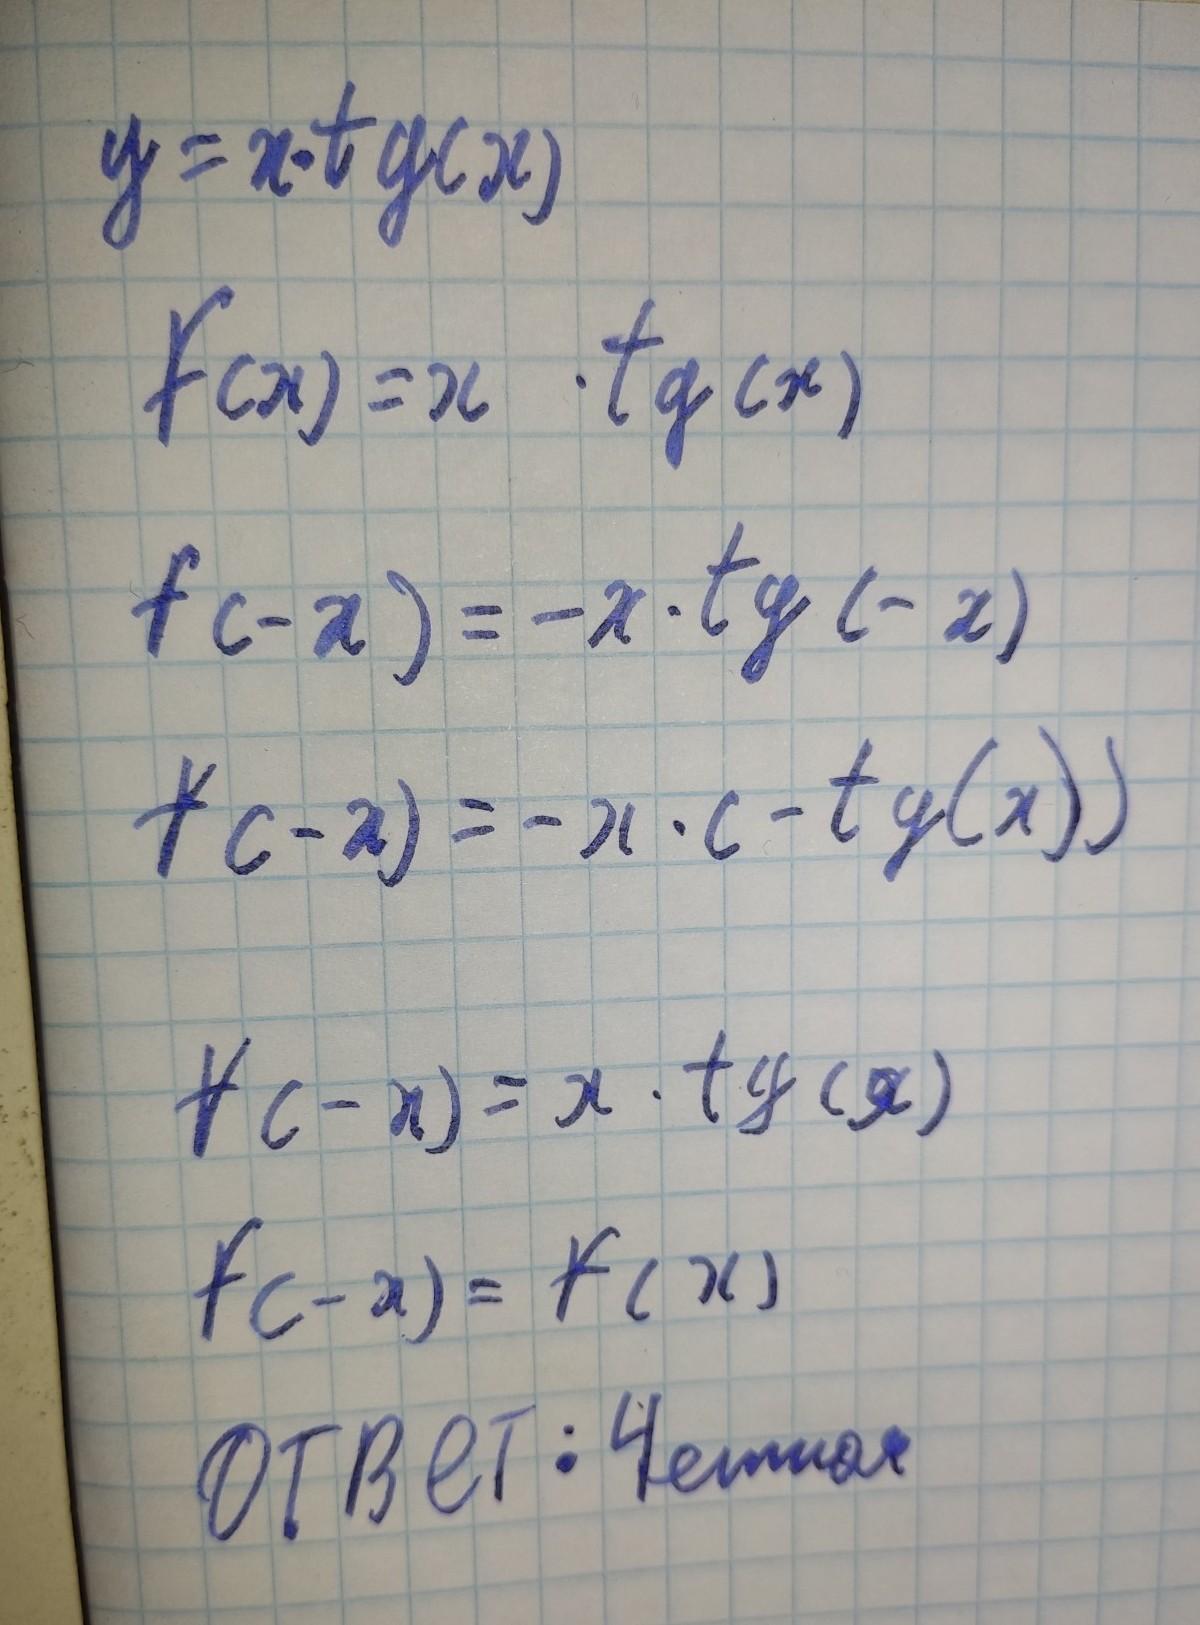 y = x·tg(x)
f(x) = x ·tg(x)
f(-x) = -x·tg(-x)
f(-x) = -x·(-tg(x))
f(-x) = x·tg(x)
f(-x) = f(x)
ОТВЕТ: Четная